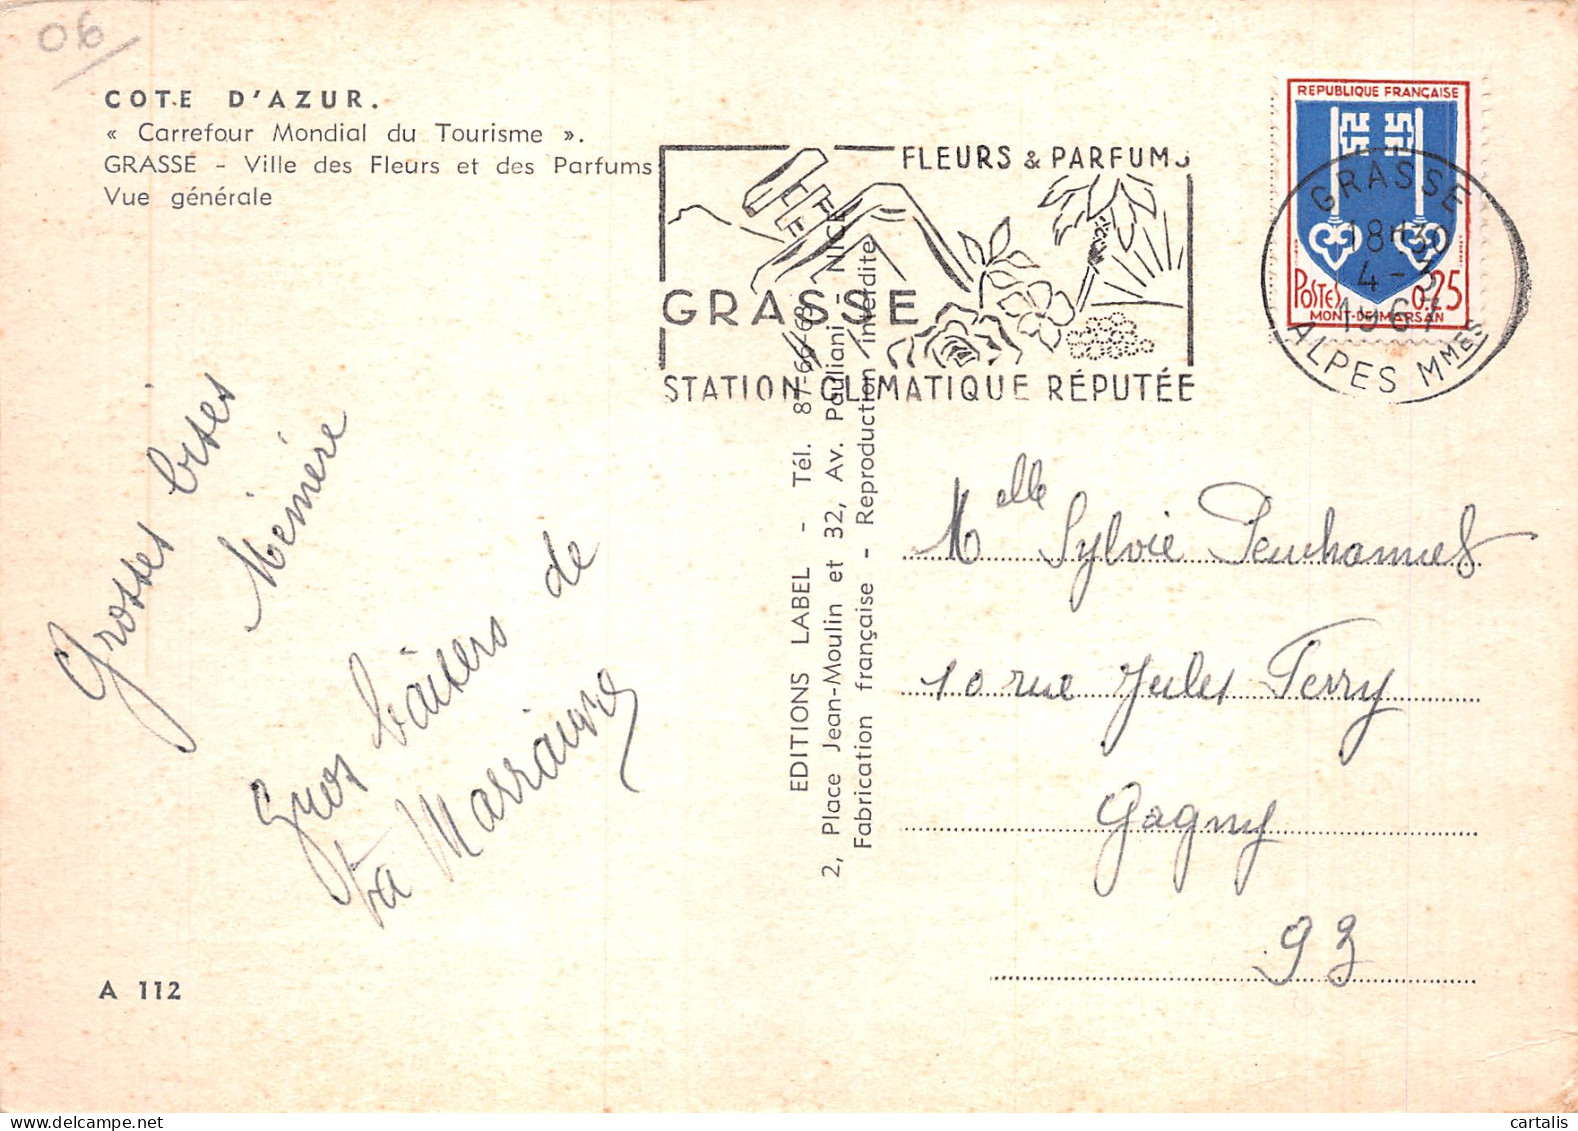 06
COTE D'AZUR.
« Carrefour Mondial du Tourisme ».
GRASSE - Ville des Fleurs et des Parfums
Vue générale
FLEURS & PARFUMS
GRASSE
STATION CLIMATIQUE RÉPUTÉE
REPUBLIQUE FRANÇAISE
POSTES 0,25
MONT-DE-MARSAN
GRASSE
18H30
4-3
1967
ALPES MMES
Grosses bises
Mémère
Gros baisers de
ta Marraine
EDITIONS LABEL - Tél. 87-66-68
2, Place Jean-Moulin et 32, Av. Pauliani - NICE
Fabrication française - Reproduction interdite
Melle Sylvie
10 rue Jules Ferry
Gagny
93
A 112
delcampe.net
cartalis